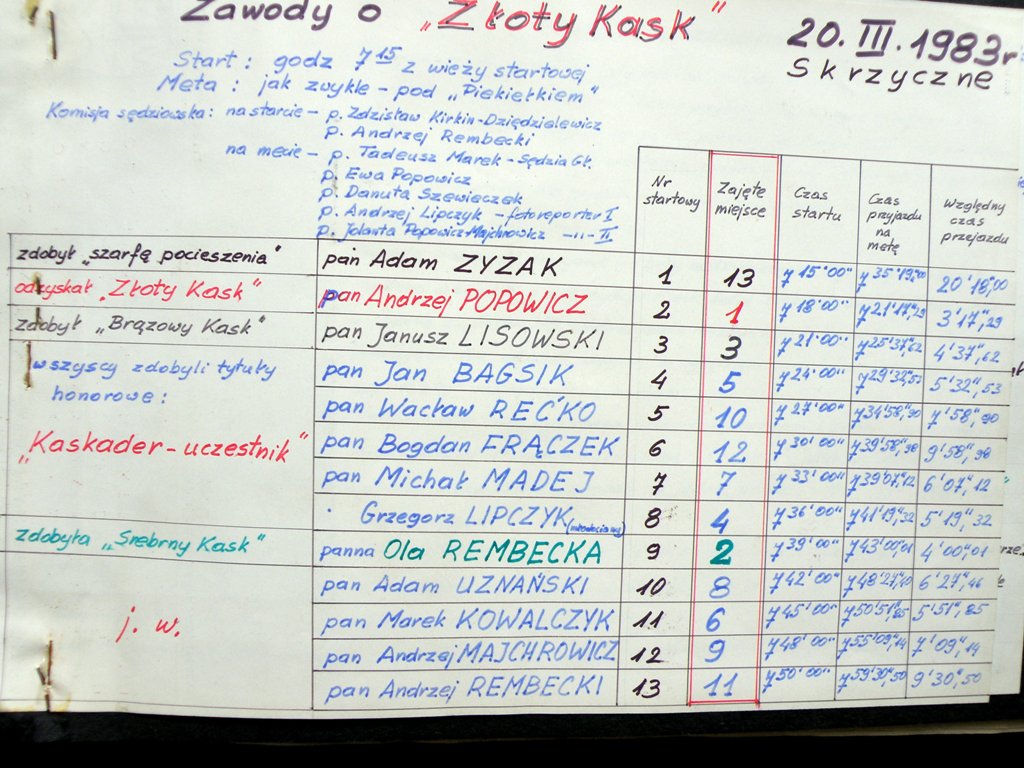 Zawody o „Złoty Kask"
20. III. 1983r
Skrzyczne
Start: godz 7 15 z wieży startowej
Meta: jak zwykle - pod „Piekiełkiem"
Komisja sędziowska: na starcie - p. Zdzisław Kirkin-Dziędzielewicz
p. Andrzej Rembecki
na mecie - p. Tadeusz Marek - Sędzia Gł.
p. Ewa Popowicz
p. Danuta Szewieczek
p. Andrzej Lipczyk - fotoreporter I
p. Jolanta Popowicz-Majchrowicz -"- II
Nr startowy Zajęte miejsce Czas startu Czas przyjazdu na metę Względny czas przejazdu
zdobył „szarfę pocieszenia" pan Adam ZYZAK 1 13 7 15'00" 7 35'18",00 20'18",00
odzyskał „Złoty Kask" pan Andrzej POPOWICZ 2 1 7 18'00" 7 21'17",29 3'17",29
zdobył „Brązowy Kask" pan Janusz LISOWSKI 3 3 7 21'00" 7 25'37",62 4'37",62
wszyscy zdobyli tytuły honorowe: pan Jan BAGSIK 4 5 7 24'00" 7 29'32",53 5'32",53
pan Wacław REĆKO 5 10 7 27'00" 7 34'58",90 7'58",90
„Kaskader-uczestnik" pan Bogdan FRĄCZEK 6 12 7 30'00" 7 39'58",98 9'58",98
pan Michał MADEJ 7 7 7 33'00" 7 39'07",12 6'07",12
Grzegorz LIPCZYK 8 4 7 36'00" 7 41'19",32 5'19",32
zdobyła „Srebrny Kask" panna Ola REMBECKA 9 2 7 39'00" 7 43'00",01 4'00",01
pan Adam UZNAŃSKI 10 8 7 42'00" 6'27",46
j. w. pan Marek KOWALCZYK 11 6 7 45'00" 7 50'51",85 5'51",85
pan Andrzej MAJCHROWICZ 12 9 7 48'00" 7 55'09",14 7'09",14
pan Andrzej REMBECKI 13 11 7 50'00" 7 59'30",50 9'30",50